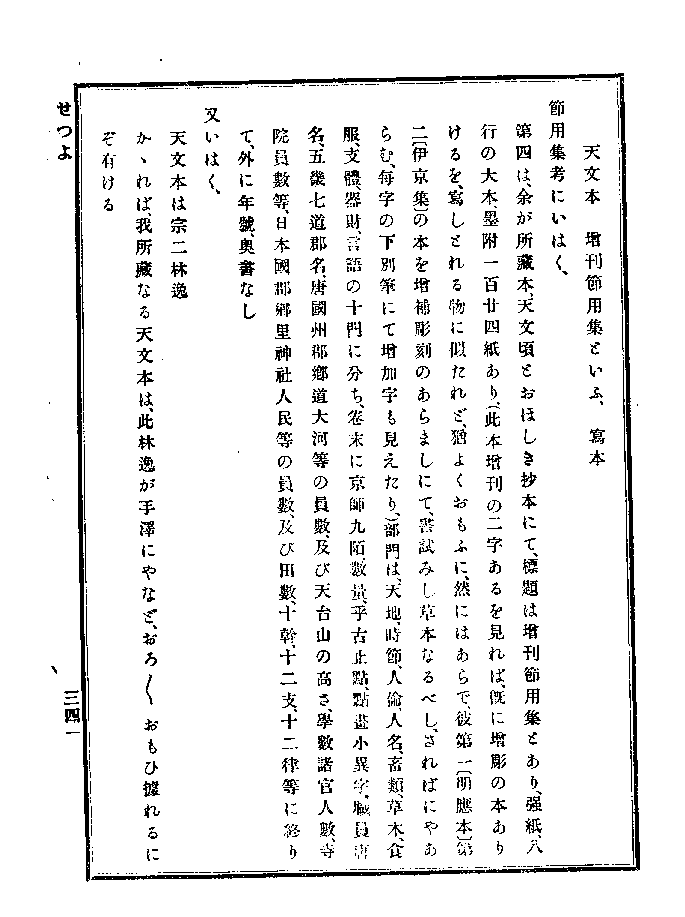 天文本　增刊節用集といふ、　寫本
節用集考にいはく、
第四は、余が所藏本、天文頃とおほしき抄本にて、標題は增刊節用集とあり、强紙八
行の大本、墨附一百廿四紙あり、(此本增刊の二字あるを見れば、旣に增彫の本あり
けるを、寫しとれる物に似たれど、猶よくおもふに、然にはあらで、彼第一〔明應本〕第
二〔伊京集〕の本を增補彫刻のあらましにて、書試みし草本なるべし、さればにやあ
らむ、每字の下別筆にて增加字も見えたり、)部門は、天地、時節、人倫、人名、畜類、草木、食
服、支體、器財、言語の十門に分ち、卷末に京師九陌、數量、乎古止點、點畫小異字、職員唐
名、五畿七道郡名、唐國州郡鄕道大河等の員數、及び天台山の高さ、學數諸官人數、寺
院員數等、日本國郡鄕里神社人民等の員數、及び田數、十幹、十二支、十二律等に終り
て、外に年號、奧書なし
又いはく、
天文本は宗二林逸
かゝれば、我所藏なる天文本は、此林逸が手澤にやなど、おろ〱おもひ據れるに
ぞ有ける
せつよ
三四一